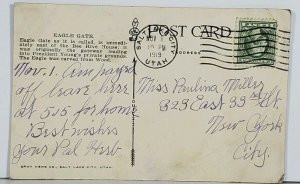 EAGLE GATE.
Eagle Gate as it is called, is immedi-
ately east of the Bee Hive House; it
was originally the gateway leading
into President Young's private grounds.
The Eagle was carved from Wood.
POST CARD
ADDRESS
SALT LAKE CITY
NOV
PM
1919
UTAH
Nov. 1. Am
off leave here
at 505 for home
Best wishes
Your Pal Herb
Miss Paulina Miller
329 East 33rd St.
New York
City.
GRAY NEWS CO., SALT LAKE CITY, UTAH.